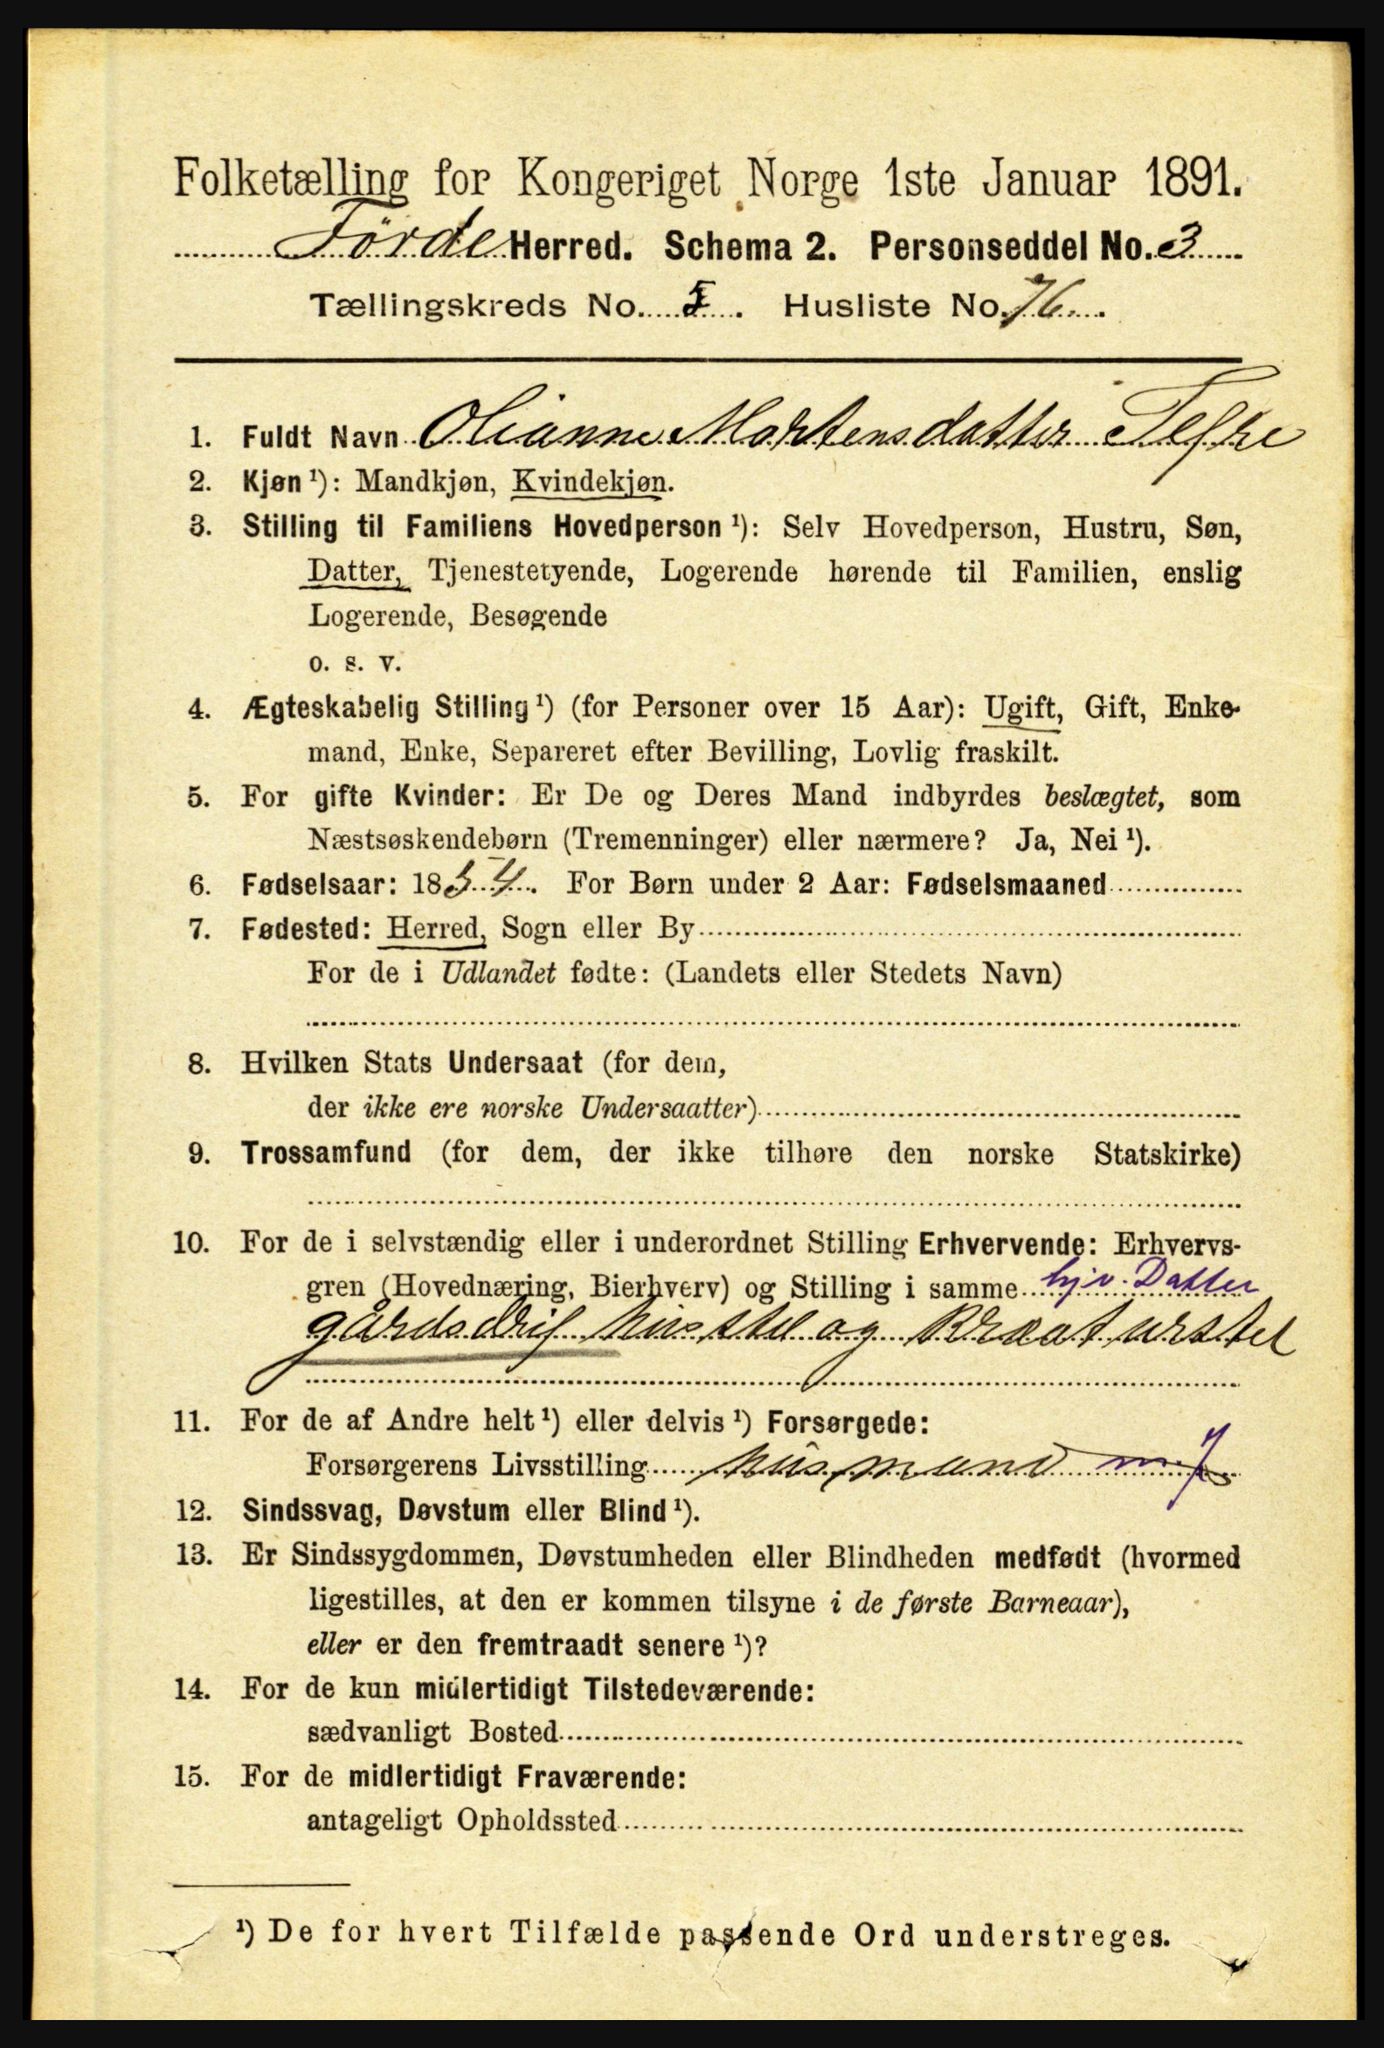 Folketælling for Kongeriget Norge 1ste Januar 1891.
Førde Herred. Schema 2. Personseddel No. 3
Tællingskreds No. 5. Husliste No. 76.
1. Fuldt Navn Olianne Mortensdatter Tefre
2. Kjøn ¹): Mandkjøn, Kvindekjøn.
3. Stilling til Familiens Hovedperson ¹): Selv Hovedperson, Hustru, Søn,
Datter, Tjenestetyende, Logerende hørende til Familien, enslig
Logerende, Besøgende
o. s. v.
4. Ægteskabelig Stilling ¹) (for Personer over 15 Aar): Ugift, Gift, Enke-
mand, Enke, Separeret efter Bevilling, Lovlig fraskilt.
5. For gifte Kvinder: Er De og Deres Mand indbyrdes beslægtet, som
Næstsøskendebørn (Tremenninger) eller nærmere? Ja, Nei ¹).
6. Fødselsaar: 1854. For Børn under 2 Aar: Fødselsmaaned
7. Fødested: Herred, Sogn eller By
For de i Udlandet fødte: (Landets eller Stedets Navn)
8. Hvilken Stats Undersaat (for dem,
der ikke ere norske Undersaatter)
9. Trossamfund (for dem, der ikke tilhøre den norske Statskirke)
10. For de i selvstændig eller i underordnet Stilling Erhvervende: Erhvervs-
gren (Hovednæring, Bierhverv) og Stilling i samme hjv. Datter
gårdsdrif husstel og Kreaturstel
11. For de af Andre helt ¹) eller delvis ¹) Forsørgede:
Forsørgerens Livsstilling husmand m. J
12. Sindssvag, Døvstum eller Blind ¹).
13. Er Sindssygdommen, Døvstumheden eller Blindheden medfødt (hvormed
ligestilles, at den er kommen tilsyne i de første Barneaar),
eller er den fremtraadt senere ¹)?
14. For de kun midlertidigt Tilstedeværende:
sædvanligt Bosted
15. For de midlertidigt Fraværende:
antageligt Opholdssted
¹) De for hvert Tilfælde passende Ord understreges.